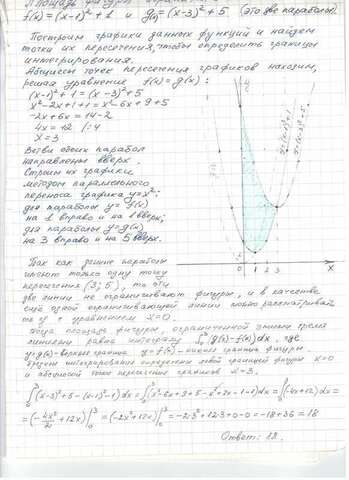 Площадь фигуры
f(x)=(x-1)²+1 и g(x)=(x-3)²+5 (это две параболы)
Построим графики данных функций и найдём
точки их пересечения, чтобы определить границы
интегрирования.
Абсциссы точек пересечения графиков находим,
решая уравнение f(x)=g(x):
(x-1)²+1=(x-3)²+5
x²-2x+1+1=x²-6x+9+5
-2x+6x=14-2
4x=12 /:4
x=3
Ветви обеих парабол
направлены вверх.
Строим их графики
методом параллельного
переноса графика y=x²:
для параболы y=f(x)
на 1 вправо и на 1 вверх;
для параболы y=g(x)
на 3 вправо и на 5 вверх.
Так как данные параболы
имеют только одну точку
пересечения (3;5), то эти
две линии не ограничивают фигуры, и в качестве
ещё одной ограничивающей линии
с уравнением x=0.
площадь фигуры, ограниченной этими тремя
линиями равна интегралу ∫₀³(g(x)-f(x))dx, где
y=g(x)-верхняя граница, y=f(x)-нижняя граница фигуры
интегрирования определены левой границей фигуры x=0
и абсциссой точки пересечения графиков x=3.
∫₀³((x-3)²+5-(x-1)²-1)dx=∫₀³(x²-6x+9+5-x²+2x-1-1)dx=∫₀³(-4x+12)dx=
=(-4x²/2+12x)|₀³=(-2x²+12x)|₀³=-2·3²+12·3+0-0=-18+36=18
Ответ: 18.
y=(x-1)²+1
y=(x-3)²+5
x=0
1
2
3
x